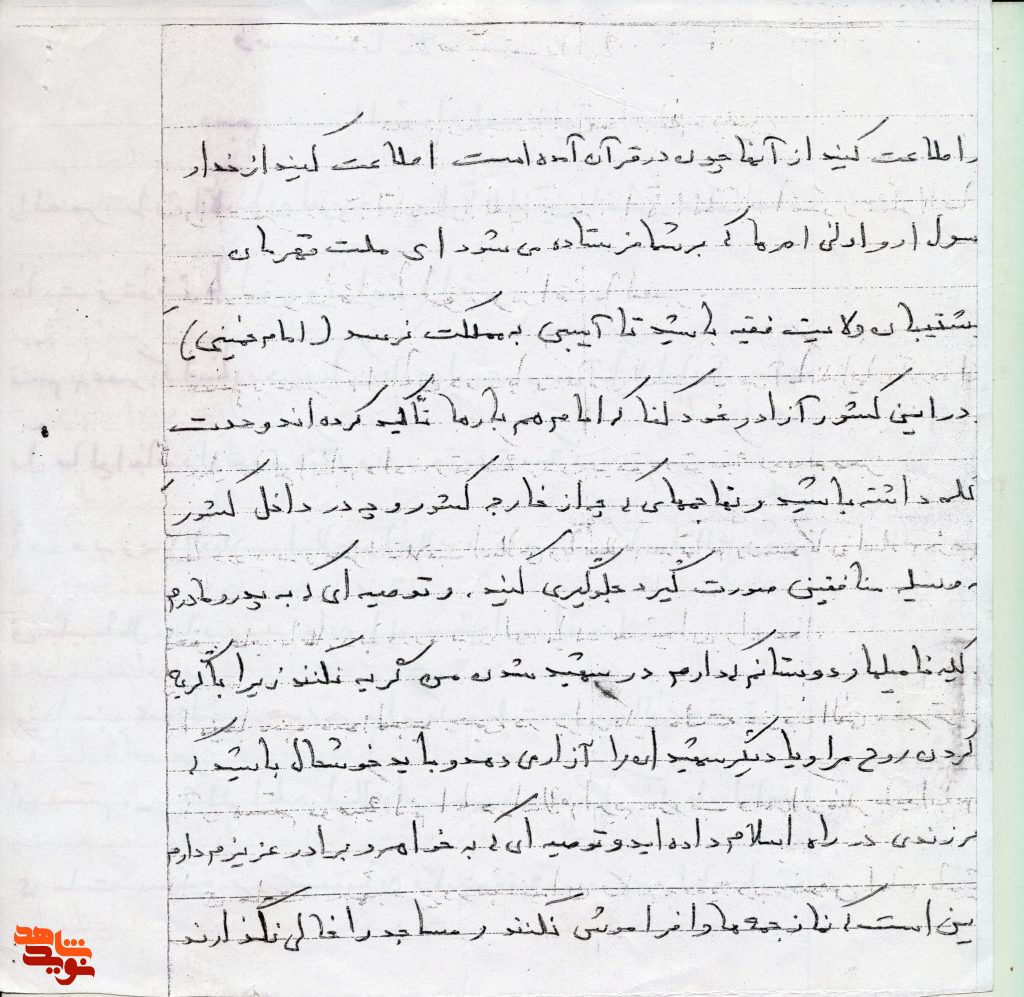 را اطاعت کنید از آنها چون در قرآن آمده است اطاعت کنید از خدا و ر
سول او و اولی امرها که بر شما فرستاده می شود ای ملت قهرمان
پشتیبان ولایت فقیه باشید تا آسیبی به مملکت نرسد (امام خمینی)
در این کشور آزاد خود که امام هم بارها تأکید کرده اند وحدت
کلمه داشته باشید و تهاجمهای که چه از خارجه کشور و چه در داخل کشور
به وسیله منافقین صورت گیرد جلوگیری کنید. و توصیه ای که به پدر و مادرم
کلیه فامیلها و دوستانم که دارم در شهید شدن من گریه نکنند زیرا با گریه
کردن روح مرا و یا دیگر شهیدان را آزار می دهد و باید خوشحال باشید که
فرزندی در راه اسلام داده اید و توصیه ای که به خواهر و برادر عزیزم دارم
این است که نماز جمعه ها را فراموش نکنند و مساجد را خالی نگذارند
نوید شاهد